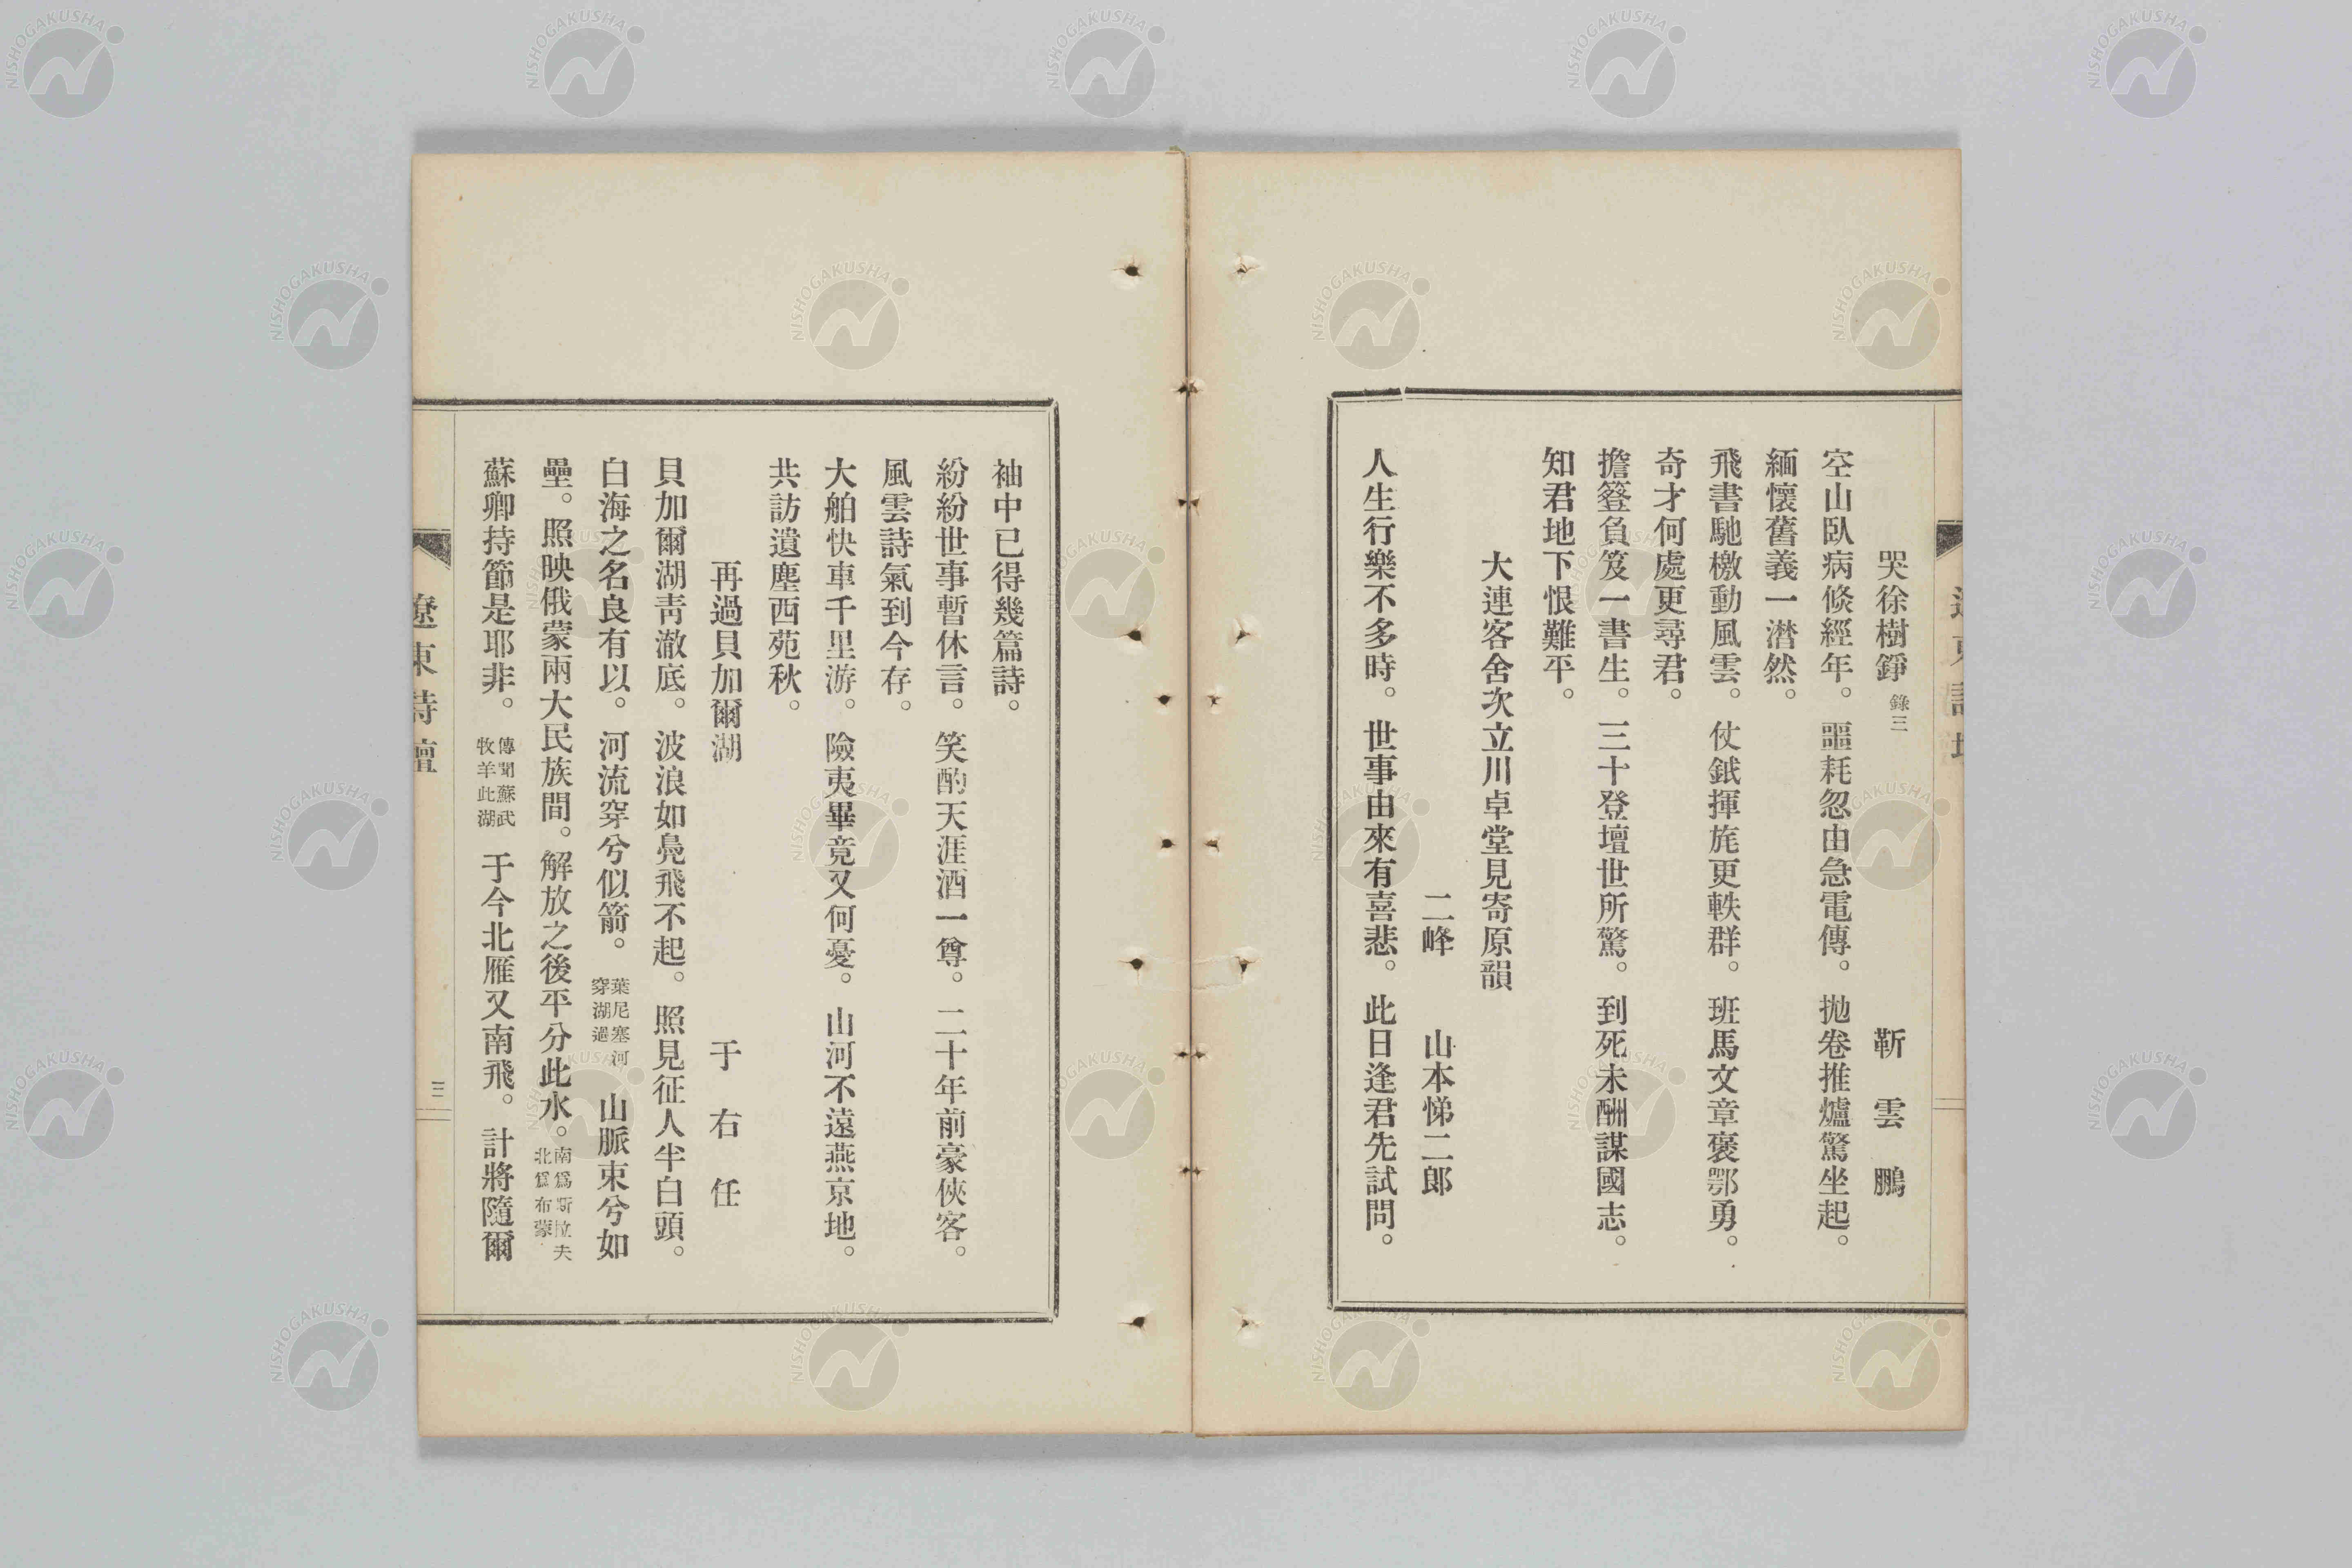 哭徐樹錚 錄三 靳雲鵬
空山臥病倐經年。噩耗忽由急電傳。拋卷推爐驚坐起。
緬懷舊義一潸然。
飛書馳檄動風雲。仗鉞揮旄更軼群。班馬文章褒鄂勇。
奇才何處更尋君。
擔簦負笈一書生。三十登壇世所驚。到死未酬謀國志。
知君地下恨難平。
大連客舍次立川卓堂見寄原韻
二峰 山本悌二郎
人生行樂不多時。世事由來有喜悲。此日逢君先試問。
袖中已得幾篇詩。
紛紛世事暫休言。笑酌天涯酒一尊。二十年前豪俠客。
風雲詩氣到今存。
大舶快車千里游。險夷畢竟又何憂。山河不遠燕京地。
共訪遺塵西苑秋。
再過貝加爾湖 于右任
貝加爾湖靑澈底。波浪如鳧飛不起。照見征人半白頭。
白海之名良有以。河流穿兮似箭。葉尼塞河穿湖過 山脈束兮如
壘。照映俄蒙兩大民族間。解放之後平分此水。南爲斯拉夫北爲布蒙
蘇卿持節是耶非。傳聞蘇武牧羊此湖 于今北雁又南飛。計將隨爾
遼東詩壇
三
NISHOGAKUSHA